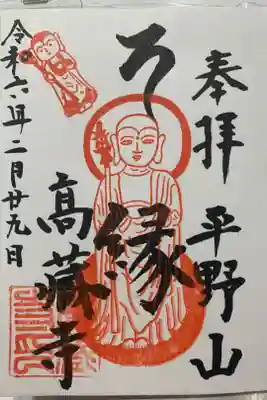 奉拝 平野山
縁
高蔵寺
令和六年二月廿九日